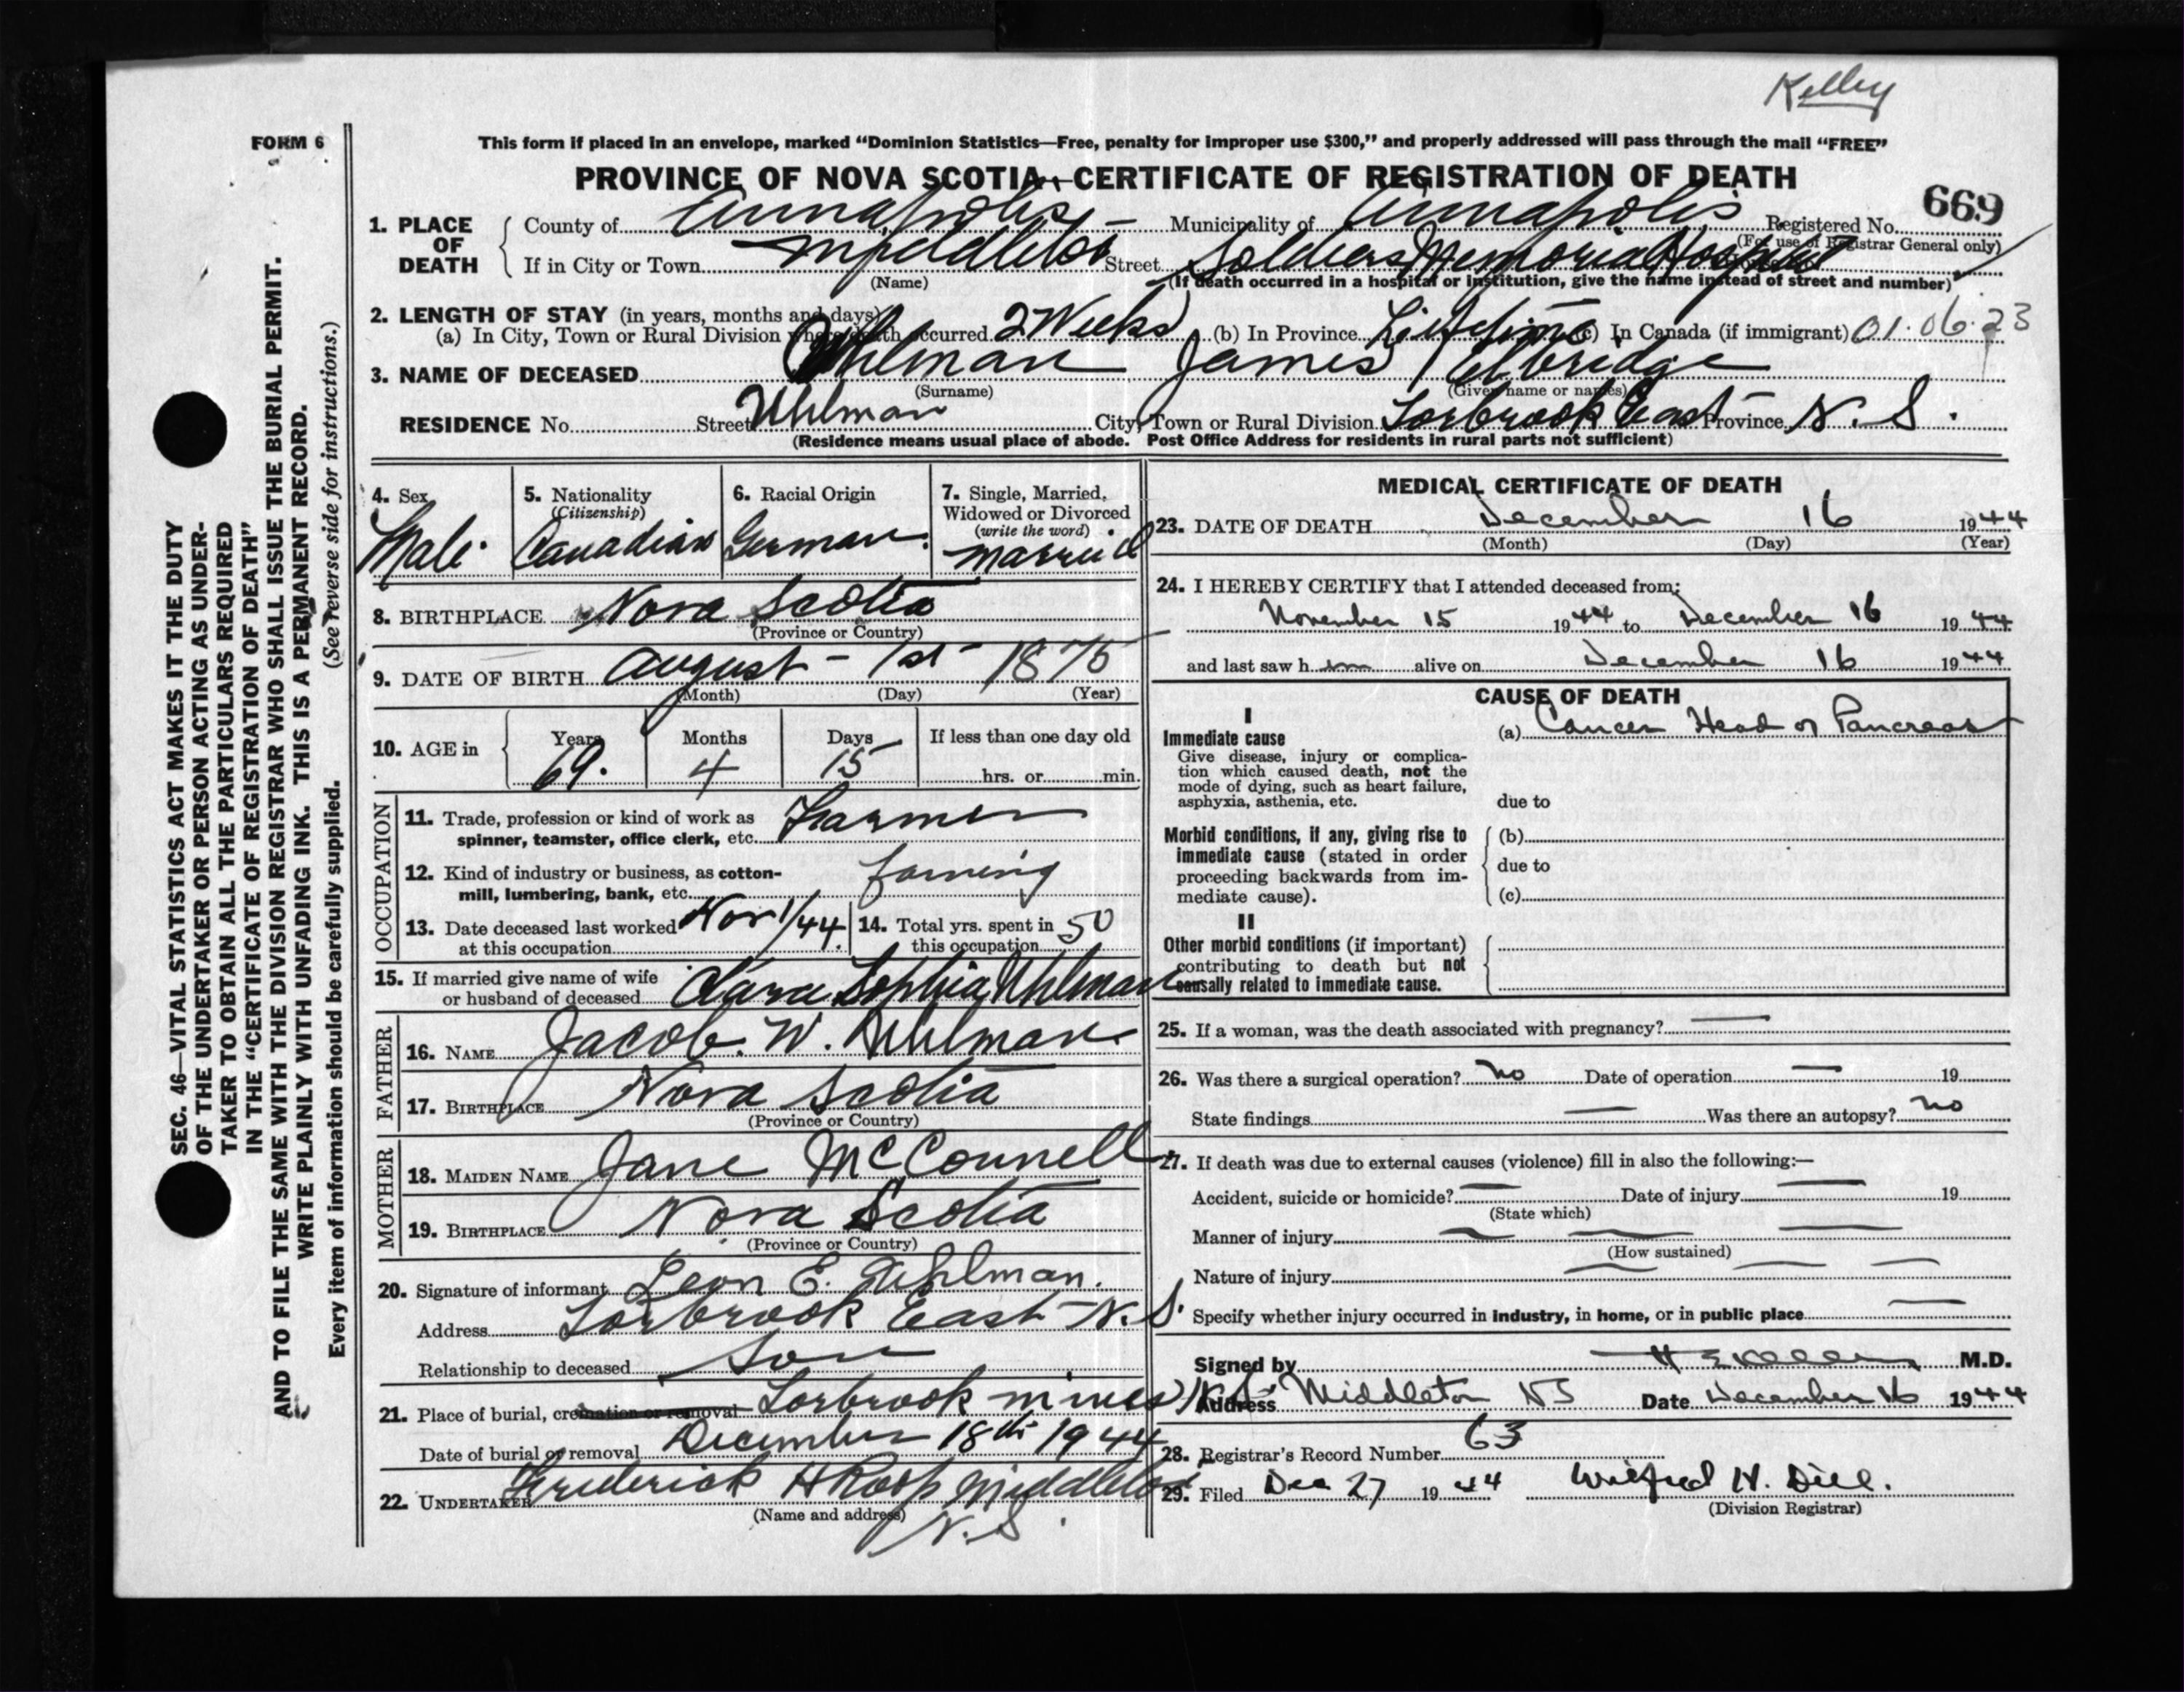 Kelley
FORM 6
This form if placed in an envelope, marked “Dominion Statistics—Free, penalty for improper use $300,” and properly addressed will pass through the mail “FREE”
PROVINCE OF NOVA SCOTIA—CERTIFICATE OF REGISTRATION OF DEATH
669
1. PLACE OF DEATH County of Annapolis Municipality of Annapolis Registered No.
(For use of Registrar General only)
If in City or Town Middleton Street Soldiers Memorial Hospital
(Name) (If death occurred in a hospital or institution, give the name instead of street and number)
2. LENGTH OF STAY (in years, months and days)
(a) In City, Town or Rural Division where death occurred 2 Weeks (b) In Province Lifetime (c) In Canada (if immigrant) 01.06.23
3. NAME OF DECEASED Uhlman James Elbridge
(Surname) (Given name or names)
RESIDENCE No. Street Uhlman City, Town or Rural Division Torbrook East Province N.S.
(Residence means usual place of abode. Post Office Address for residents in rural parts not sufficient)
4. Sex Male
5. Nationality (Citizenship) Canadian
6. Racial Origin German
7. Single, Married, Widowed or Divorced (write the word) married
8. BIRTHPLACE Nova Scotia
(Province or Country)
9. DATE OF BIRTH August - 1st - 1875
(Month) (Day) (Year)
10. AGE in Years 69. Months 4 Days 15 If less than one day old
hrs. or min.
OCCUPATION
11. Trade, profession or kind of work as
spinner, teamster, office clerk, etc. Farmer
12. Kind of industry or business, as cotton-
mill, lumbering, bank, etc. farming
13. Date deceased last worked
at this occupation Nov 1/44. 14. Total yrs. spent in
this occupation 50
15. If married give name of wife
or husband of deceased Clara Sophia Uhlman
FATHER
16. NAME Jacob. W. Uhlman
17. BIRTHPLACE Nova Scotia
(Province or Country)
MOTHER
18. MAIDEN NAME Jane McConnell
19. BIRTHPLACE Nova Scotia
(Province or Country)
20. Signature of informant Leon E. Uhlman.
Address Torbrook East - N.S.
Relationship to deceased Son
21. Place of burial, cremation or removal Torbrook mines N.S.
Date of burial or removal December 18th 1944
22. UNDERTAKER Frederick H Roop Middleton
(Name and address) N.S.
MEDICAL CERTIFICATE OF DEATH
23. DATE OF DEATH December 16 1944
(Month) (Day) (Year)
24. I HEREBY CERTIFY that I attended deceased from:
November 15 1944 to December 16 1944
and last saw h im alive on December 16 1944
CAUSE OF DEATH
I
Immediate cause (a) Cancer Head of Pancreas
Give disease, injury or complica-
tion which caused death, not the
mode of dying, such as heart failure,
asphyxia, asthenia, etc. due to
Morbid conditions, if any, giving rise to (b)
immediate cause (stated in order due to
proceeding backwards from im-
mediate cause). (c)
II
Other morbid conditions (if important)
contributing to death but not
causally related to immediate cause.
25. If a woman, was the death associated with pregnancy? —
26. Was there a surgical operation? no Date of operation — 19
State findings — Was there an autopsy? no
27. If death was due to external causes (violence) fill in also the following:—
Accident, suicide or homicide? — Date of injury — 19
(State which)
Manner of injury — — —
(How sustained)
Nature of injury — — —
Specify whether injury occurred in industry, in home, or in public place —
Signed by H E Kelley M.D.
Address Middleton NS Date December 16 1944
28. Registrar's Record Number 63
29. Filed Dec 27 1944 Wilfred H. Dill.
(Division Registrar)
SEC. 46—VITAL STATISTICS ACT MAKES IT THE DUTY
OF THE UNDERTAKER OR PERSON ACTING AS UNDER-
TAKER TO OBTAIN ALL THE PARTICULARS REQUIRED
IN THE “CERTIFICATE OF REGISTRATION OF DEATH”
AND TO FILE THE SAME WITH THE DIVISION REGISTRAR WHO SHALL ISSUE THE BURIAL PERMIT.
WRITE PLAINLY WITH UNFADING INK. THIS IS A PERMANENT RECORD.
Every item of information should be carefully supplied. (See reverse side for instructions.)